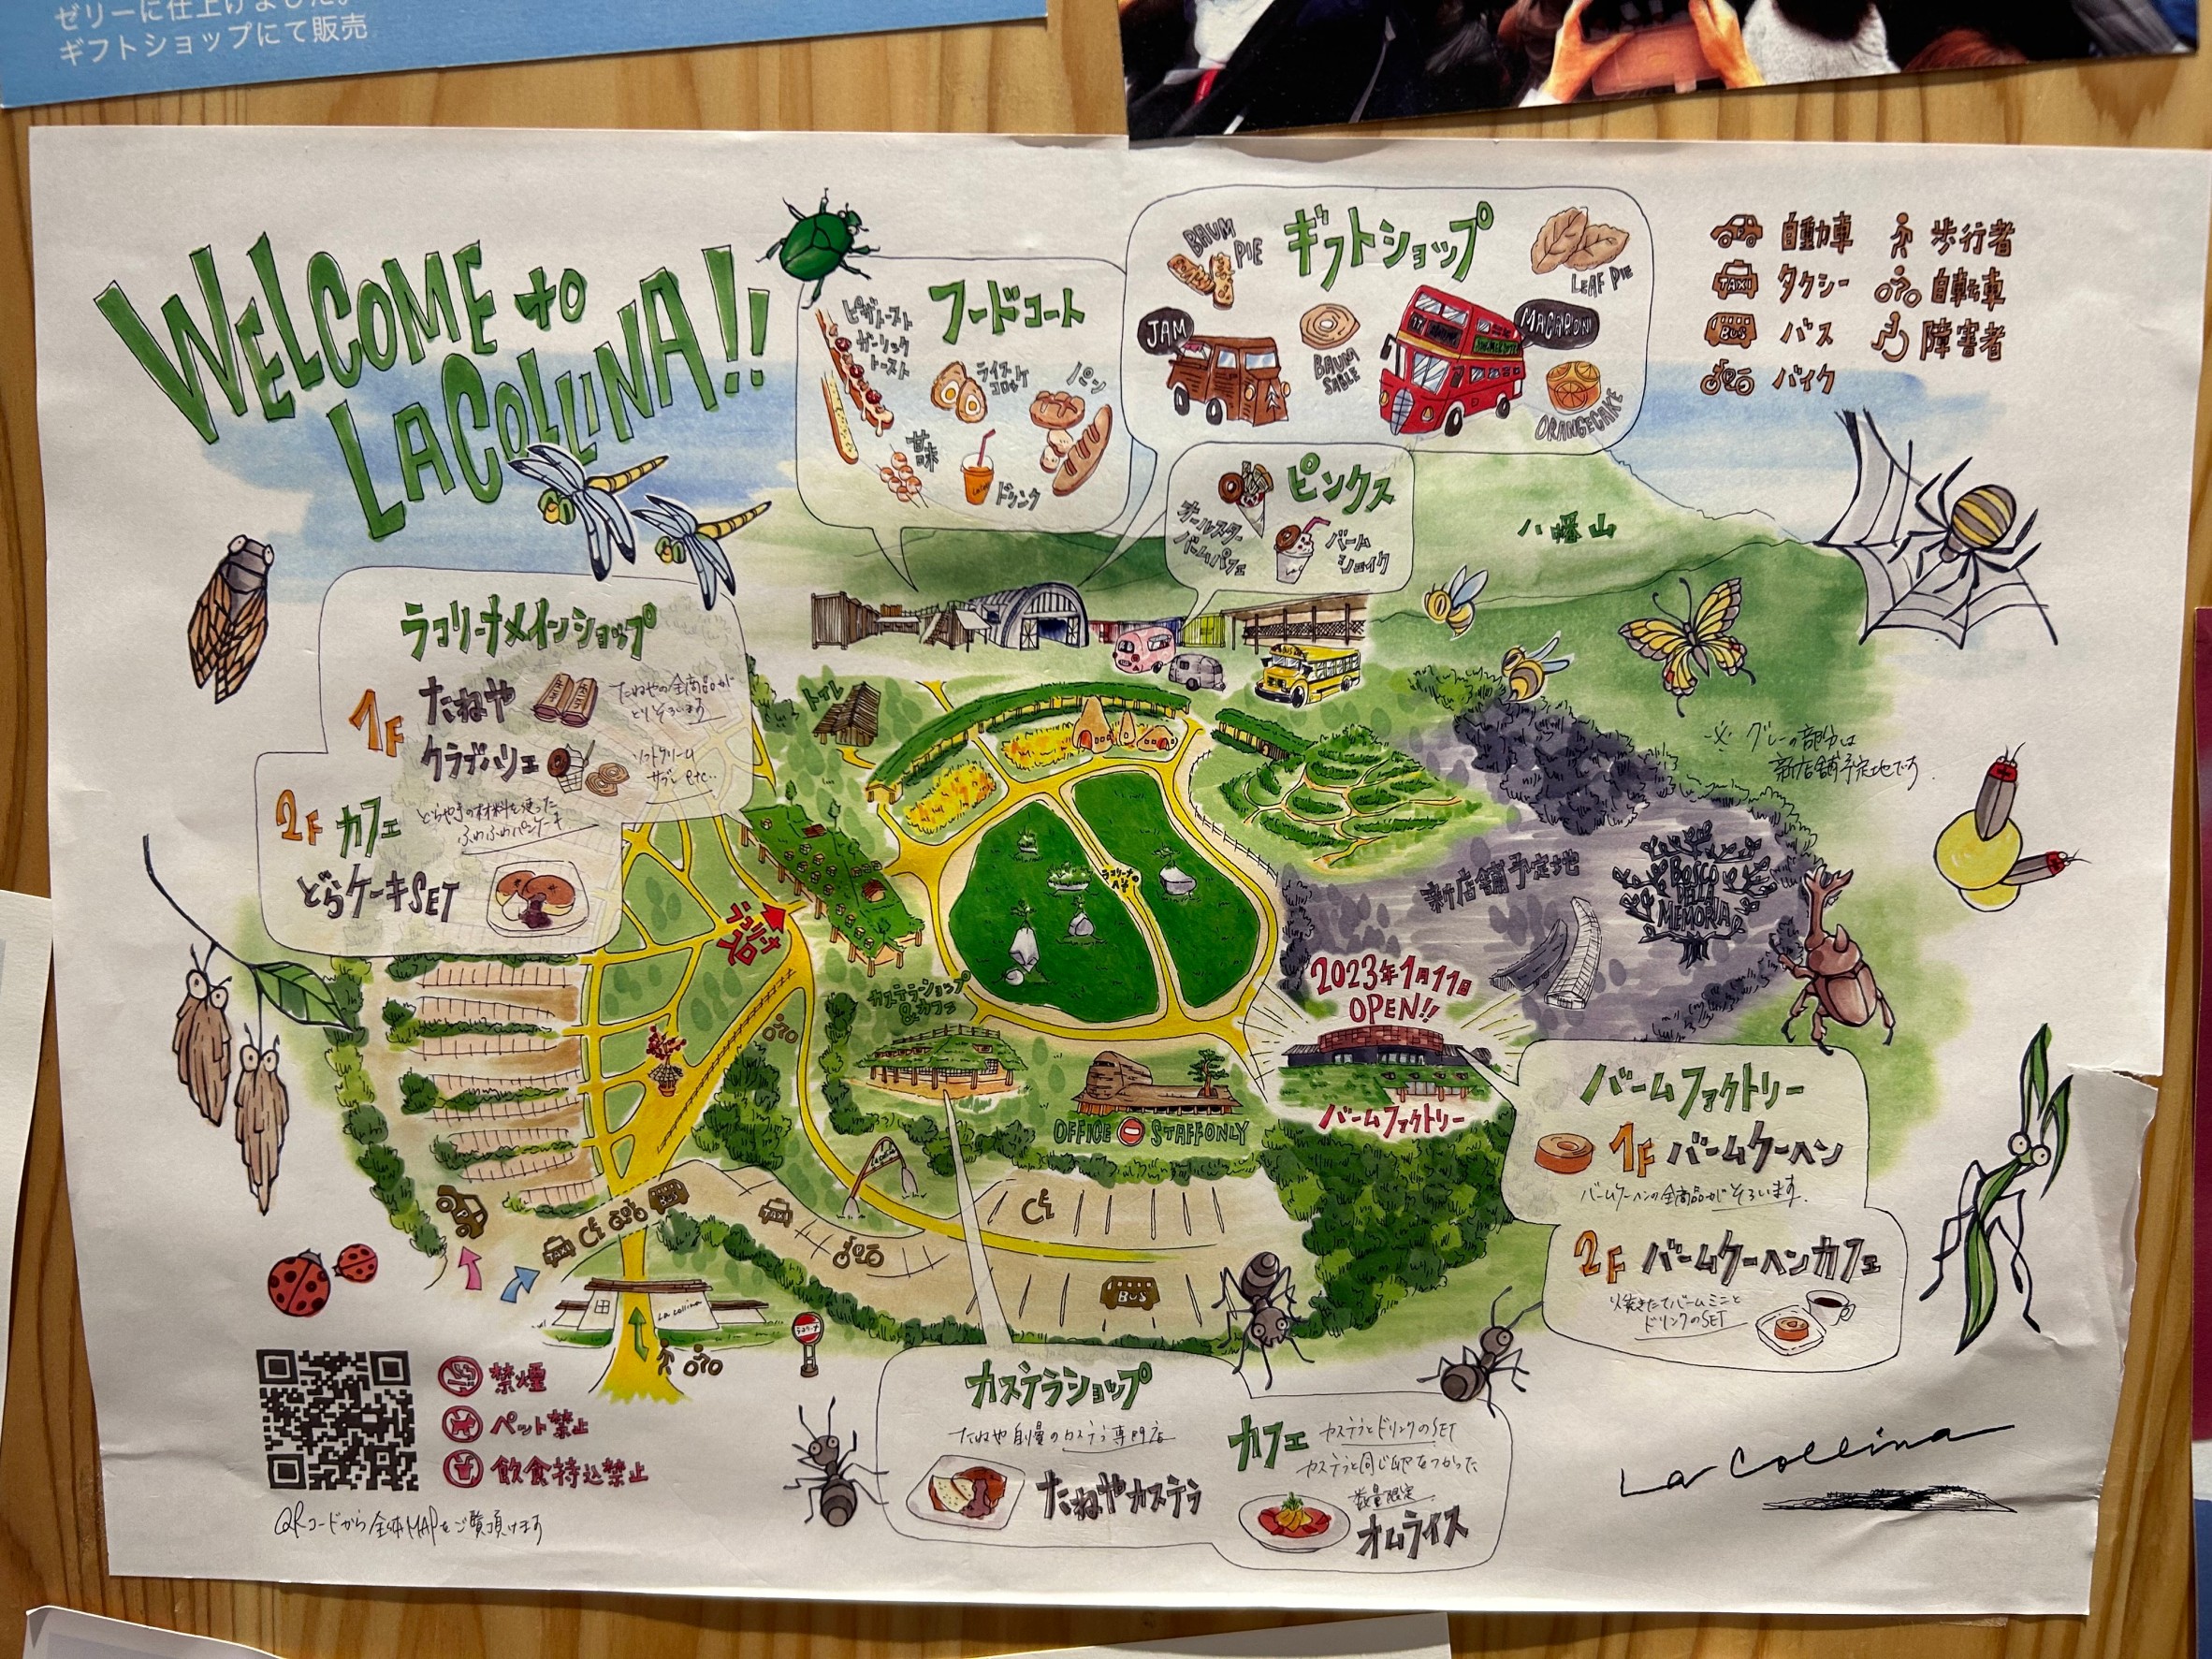 ゼリーに仕上げました。
ギフトショップにて販売
WELCOME to
LA COLLINA!!
フードコート
ピザトースト
ガーリック
トースト
ライス
コロッケ
パン
甘味
ドリンク
ギフトショップ
BAUM
PIE
LEAF PIE
JAM
BAUM
SABLE
MACARONI
ORANGECAKE
ピンクス
オールスター
バームパフェ
バーム
シェイク
自動車
歩行者
TAXI
タクシー
自転車
BUS
バス
障害者
バイク
八幡山
ラコリーナメインショップ
1F
たねや
たねやの全商品が
とりそろいます
クラブハリエ
ソフトクリーム
サブレ etc..
2F
カフェ
どらやきの材料を使った
ふわふわパンケーキ
どらケーキSET
トイレ
※ グレーの部分は
新店舗予定地です
新店舗予定地
BOSCO
DELLA
MEMORIA
ラコリーナ
入口
カステラショップ
&カフェ
OFFICE
STAFFONLY
2023年1月11日
OPEN!!
バームファクトリー
バームファクトリー
1F
バームクーヘン
バームクーヘンの全商品がそろいます。
2F
バームクーヘンカフェ
焼きたてバームミニと
ドリンクのSET
La collina
TAXI
BUS
BUS
禁煙
ペット禁止
飲食持込禁止
QRコードから全体MAPをご覧頂けます
カステラショップ
たねや自慢のカステラ専門店
たねやカステラ
カフェ
カステラとドリンクのSET
カステラと同じ卵をつかった
数量限定
オムライス
La Collina